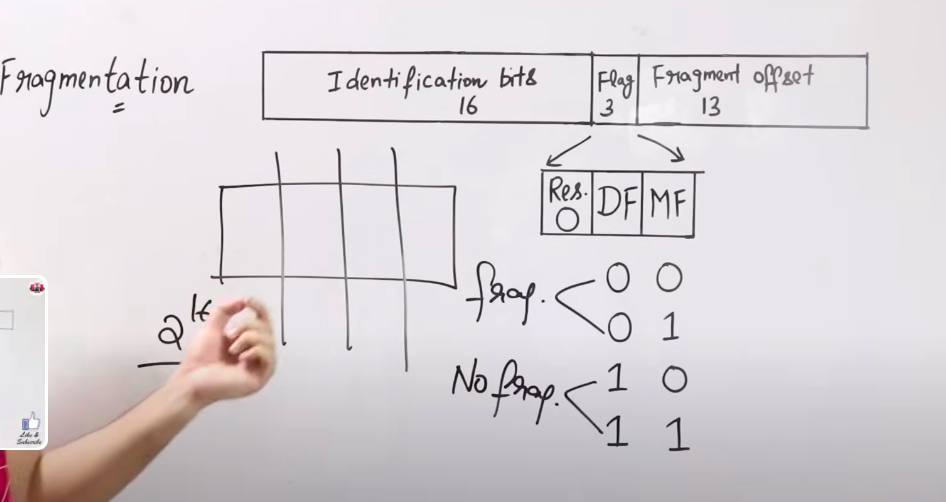 Fragmentation
Identification bits
16
Flag
3
Fragment offset
13
Res.
0
DF
MF
frag.
0 0
0 1
No frag.
1 0
1 1
Like &
Subscribe